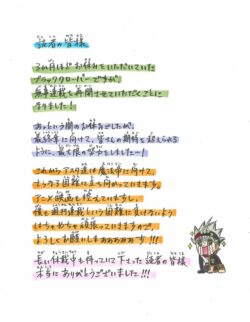 読者の皆様
3か月ほどお休みをいただいていた
ブラッククローバーですが、
無事連載を再開させていただくことに
なりました!
あっという間のお休みでしたが、
最終章に向けて、皆さんの期待を超えられる
ように、最大限の努力をしました…!
これからアスタ達は魔法帝に向けて、
さらなる困難に立ち向かっていきます。
アニメ映画も控えていますし、
僕も週刊連載という困難に負けないよう
はちゃめちゃ頑張っていきますので、
よろしくお願いしまああああす!!!
長い休載中も待っていて下さった読者の皆様
本当にありがとうございました!!!